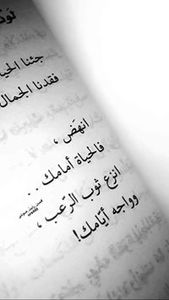 جئنا الحيا
فقدنا الجمال
انهَض ،
فالحياة أمامك . .
انزع ثوب الرّعب ،
وواجه أيّامك!